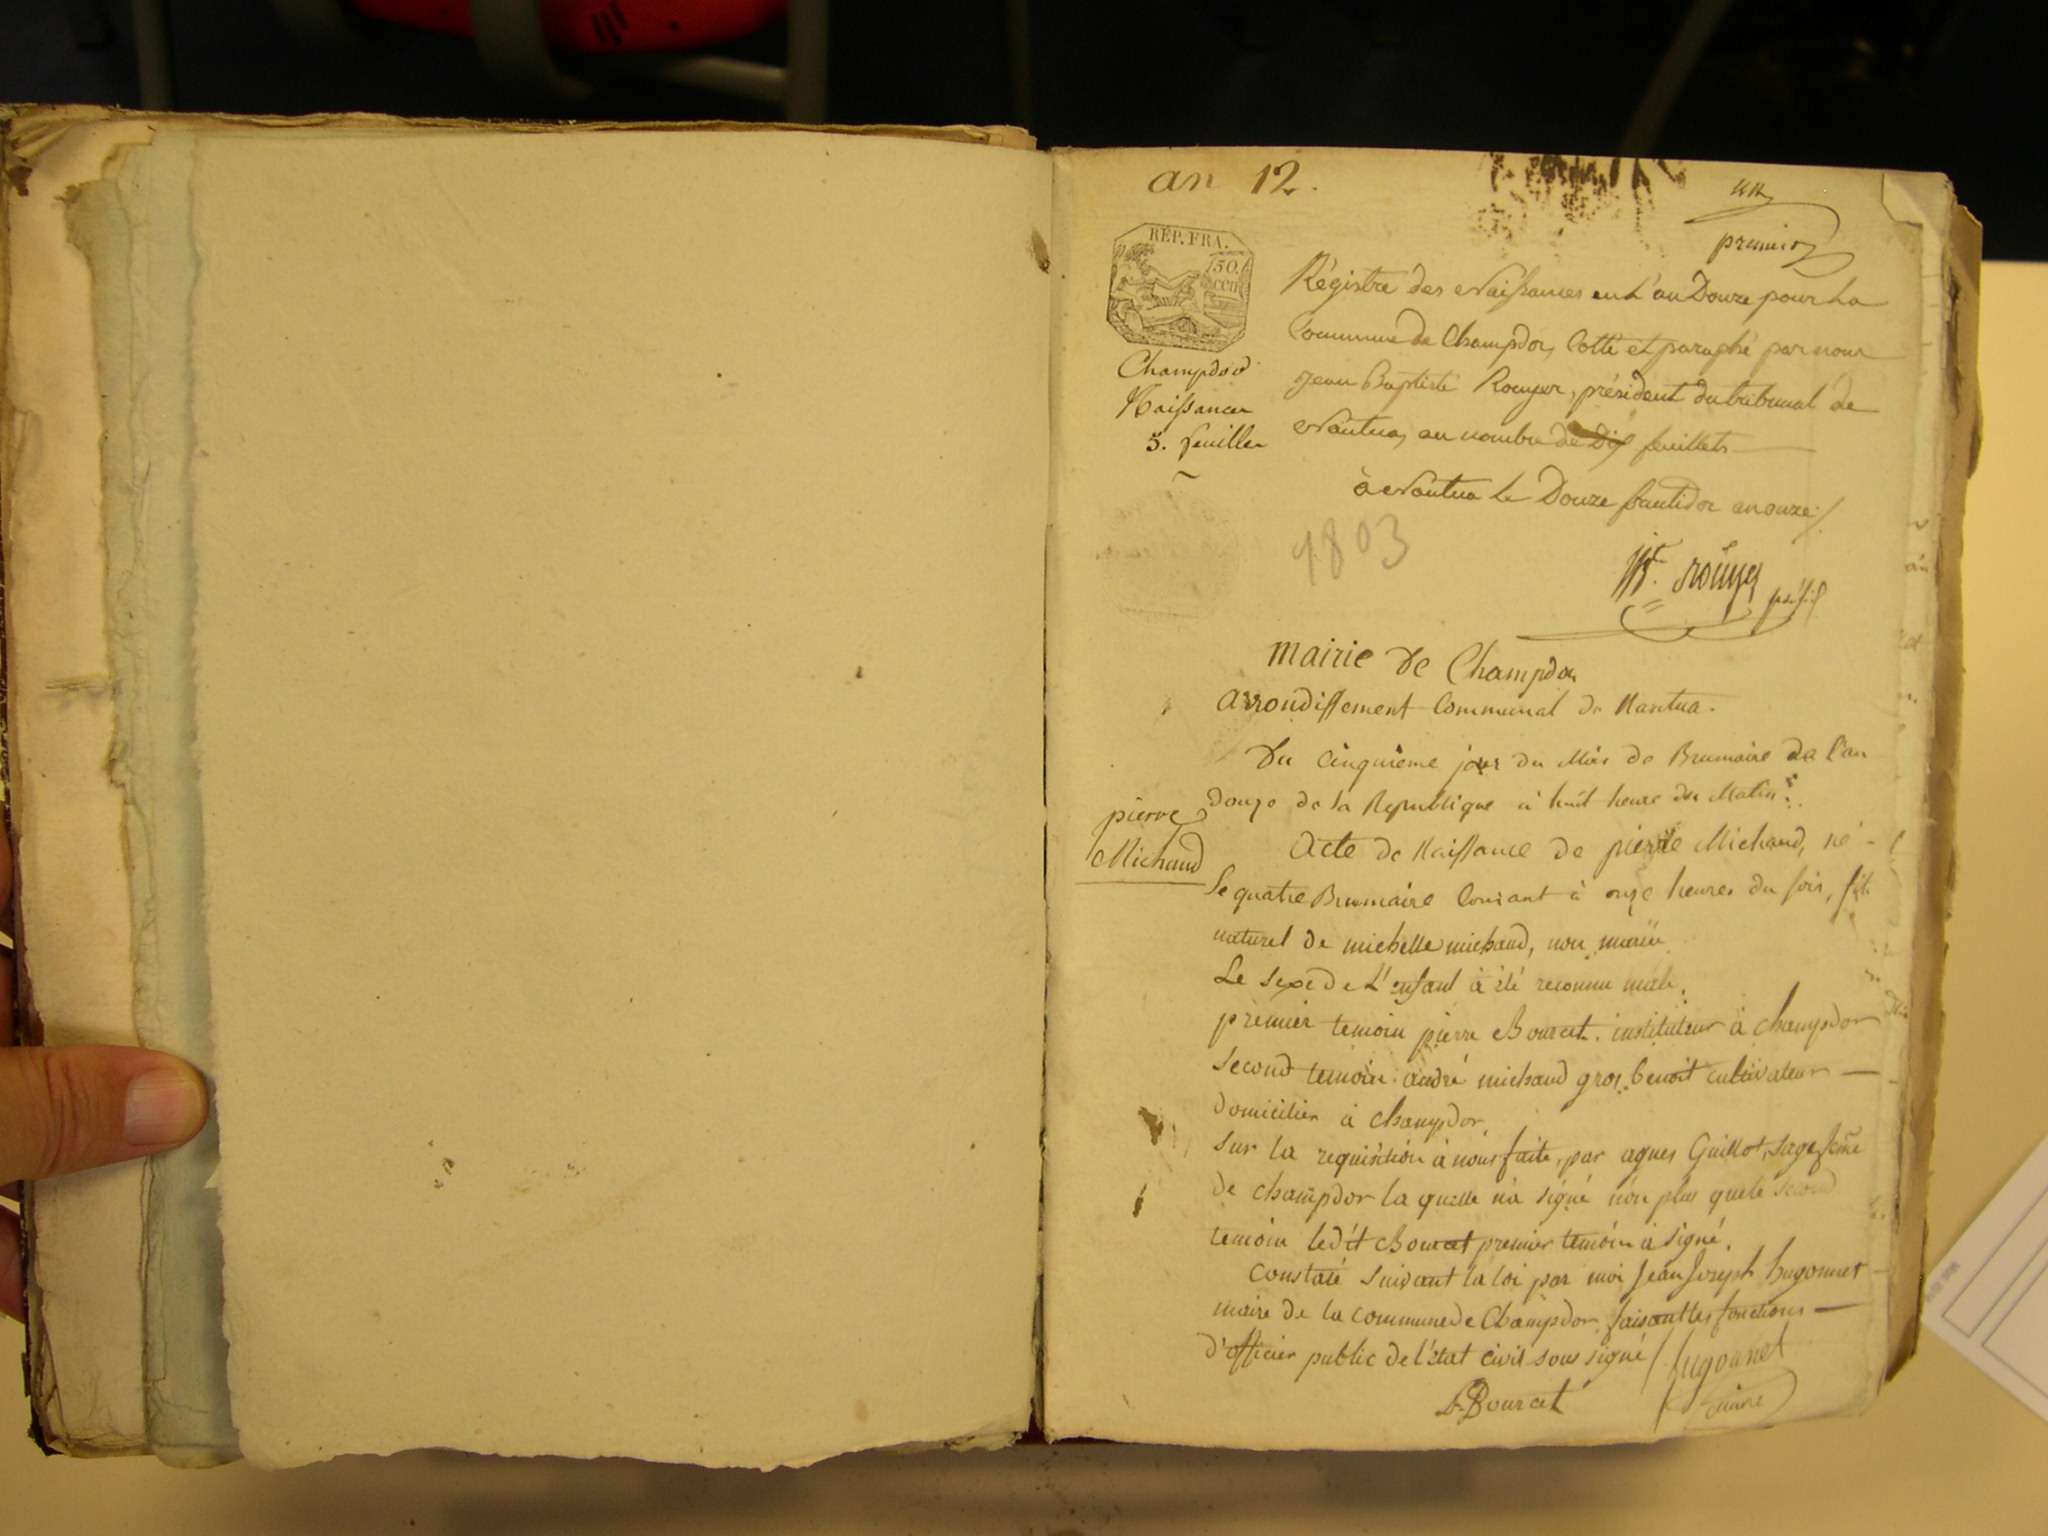 an 12.
premier
REP. FRA.
50.
cen
Champdor
Naissances
5. feuilles
Régistre des Naissances en L'an Douze pour La
Commune de Champdor, Cotté et paraphé par nous
Jean Baptiste Rouyer, président du tribunal de
Nantua, au nombre de Dix feuillets
à Nantua le Douze fructidor an onze /.
1803
J.B.te Rouyer présid
Mairie de Champdor
Arrondissement Communal de Nantua.
Du Cinquième jour du Mois de Brumaire de l'an
douze de la Republique à huit heure du Matin.
pierre
Michaud
Acte de Naissance de pierre Michaud, né
le quatre Brumaire Courant à onze heures du soir, fils
naturel de michelle michaud, non mariée
Le sexe de L'enfant à été reconnu male.
premier temoin pierre Bourcet. instituteur à champdor
second temoin andré michaud gros benoit cultivateur
domicilier à champdor.
sur la requisition à nous faite, par agnes Guillot, sage feme
de champdor la quelle n'a signé non plus que le second
temoin ledit Bourcet premier temoin a signé.
Constaté suivant la loi par moi Jean Joseph hugonnet
maire de la commune de Champdor faisant les fonctions
d'officier public de l'état civil sous signé / hugonnet
P. Bourcet
maire